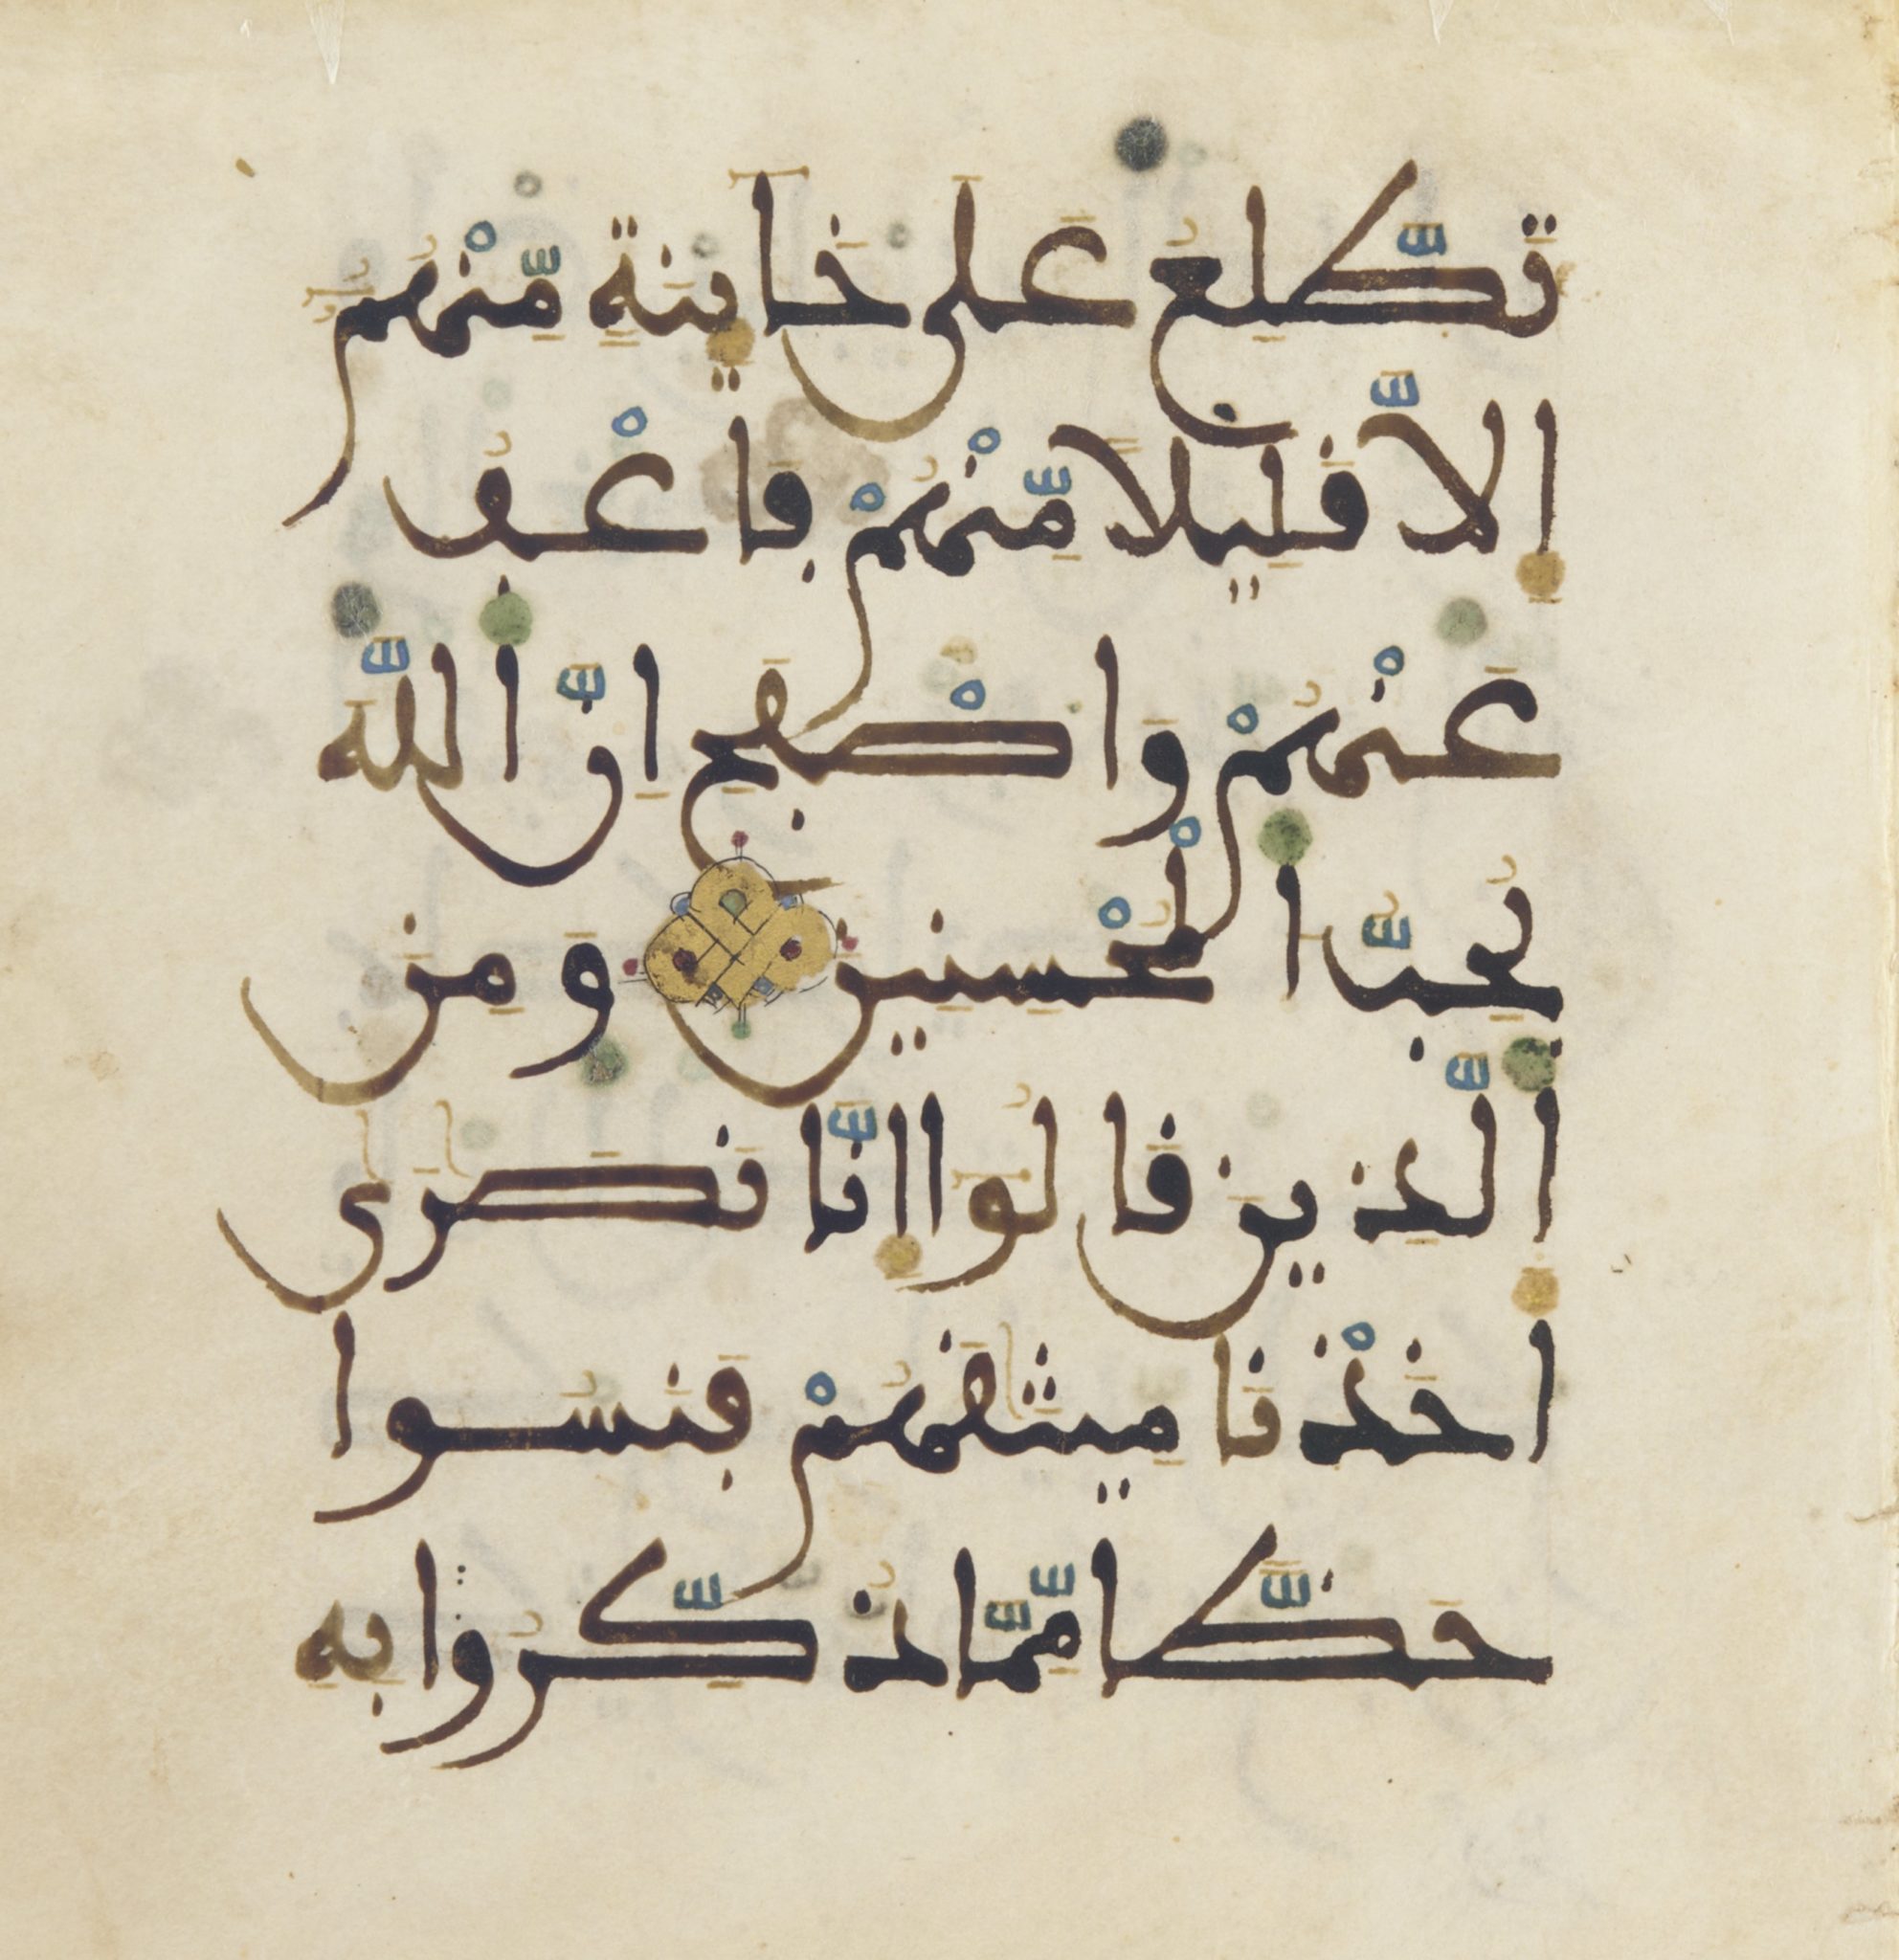 تَطَّلِعُ عَلَىٰ خَآئِنَةٍ مِّنْهُمُۥٓ
إِلَّا قَلِيلًا مِّنْهُمْ فَاعْفُ
عَنْهُمْ وَاصْفَحِ اِنَّ اَللَّهَ
يُحِبُّ اُلْمُحْسِنِينَ وَمِنَ
اَلَّذِينَ قَالُوٓا إِنَّا نَصَٰرَىٰٓ
أَخَذْنَا مِيثَٰقَهُمْ فَنَسُوا
حَظًّا مِّمَّا ذُكِّرُوا بِهِ